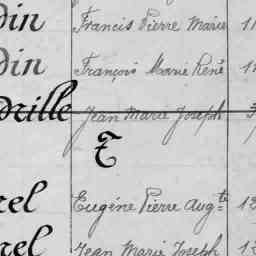 din Francis Pierre Marie 1
din François Marie René 1
drille Jean Marie Joseph
T
rel Eugène Pierre Augte 12
rel Jean Marie Joseph 1